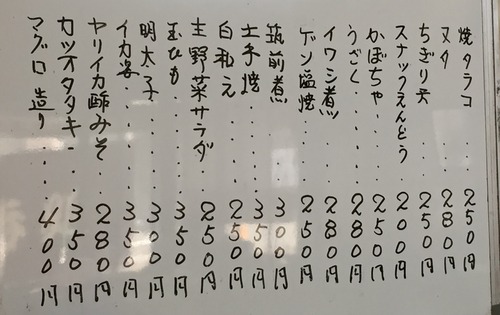 焼タラコ....250円
ヌタ....280円
ちぎり天....250円
スナックえんどう...200円
かぼちゃ....250円
うざく.....280円
イワシ煮....280円
ゲソ塩焼....250円
筑前煮.....300円
土手焼.....350円
白和え.....250円
生野菜サラダ...250円
玉ひも.....350円
明太子.....300円
イカ姿.....350円
ヤリイカ酢みそ...280円
カツオタタキ...350円
マグロ造り....400円